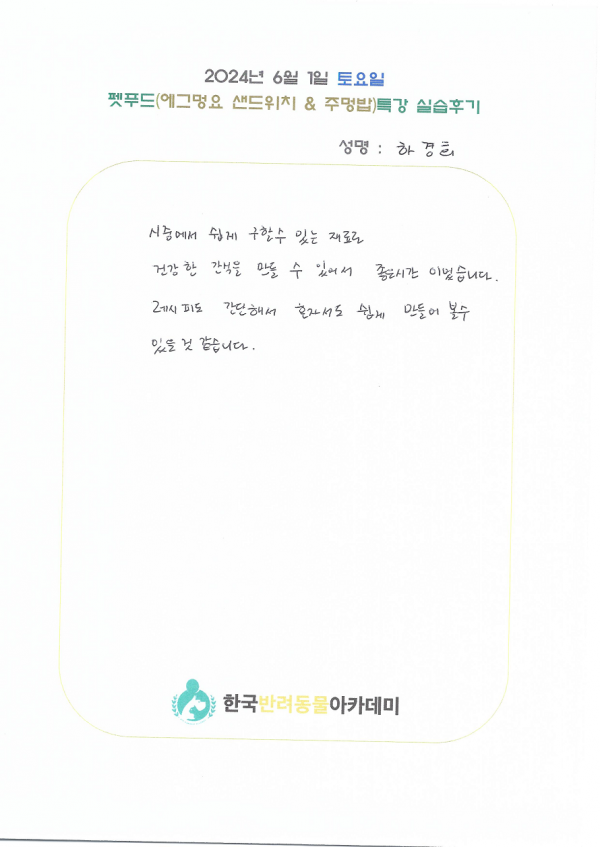 2024년 6월 1일 토요일
펫푸드(에그멍요 샌드위치 & 주멍밥)특강 실습후기
성명 : 하경희
시중에서 쉽게 구할수 있는 재료로
건강한 간식을 만들 수 있어서 좋은시간 이었습니다.
레시피도 간단해서 혼자서도 쉽게 만들어 볼수
있을것 같습니다.
한국반려동물아카데미